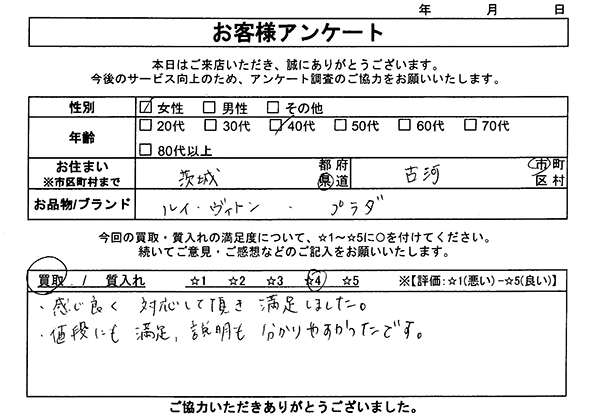 年　　月　　日
お客様アンケート
本日はご来店いただき、誠にありがとうございます。
今後のサービス向上のため、アンケート調査のご協力をお願いいたします。
性別 ☑ 女性 □ 男性 □ その他
年齢 □ 20代 □ 30代 ☑ 40代 □ 50代 □ 60代 □ 70代
□ 80代以上
お住まい
※市区町村まで
茨城 都府県道 古河 市町区村
お品物/ブランド ルイ・ヴィトン ・ プラダ
今回の買取・質入れの満足度について、☆1～☆5に○を付けてください。
続いてご意見・ご感想などのご記入をお願いいたします。
買取 / 質入れ ☆1 ☆2 ☆3 ☆4 ☆5 ※【評価:☆1(悪い)-☆5(良い)】
・感じ良く 対応して頂き 満足しました。
・値段にも 満足, 説明も 分かりやすかったです。
ご協力いただきありがとうございました。